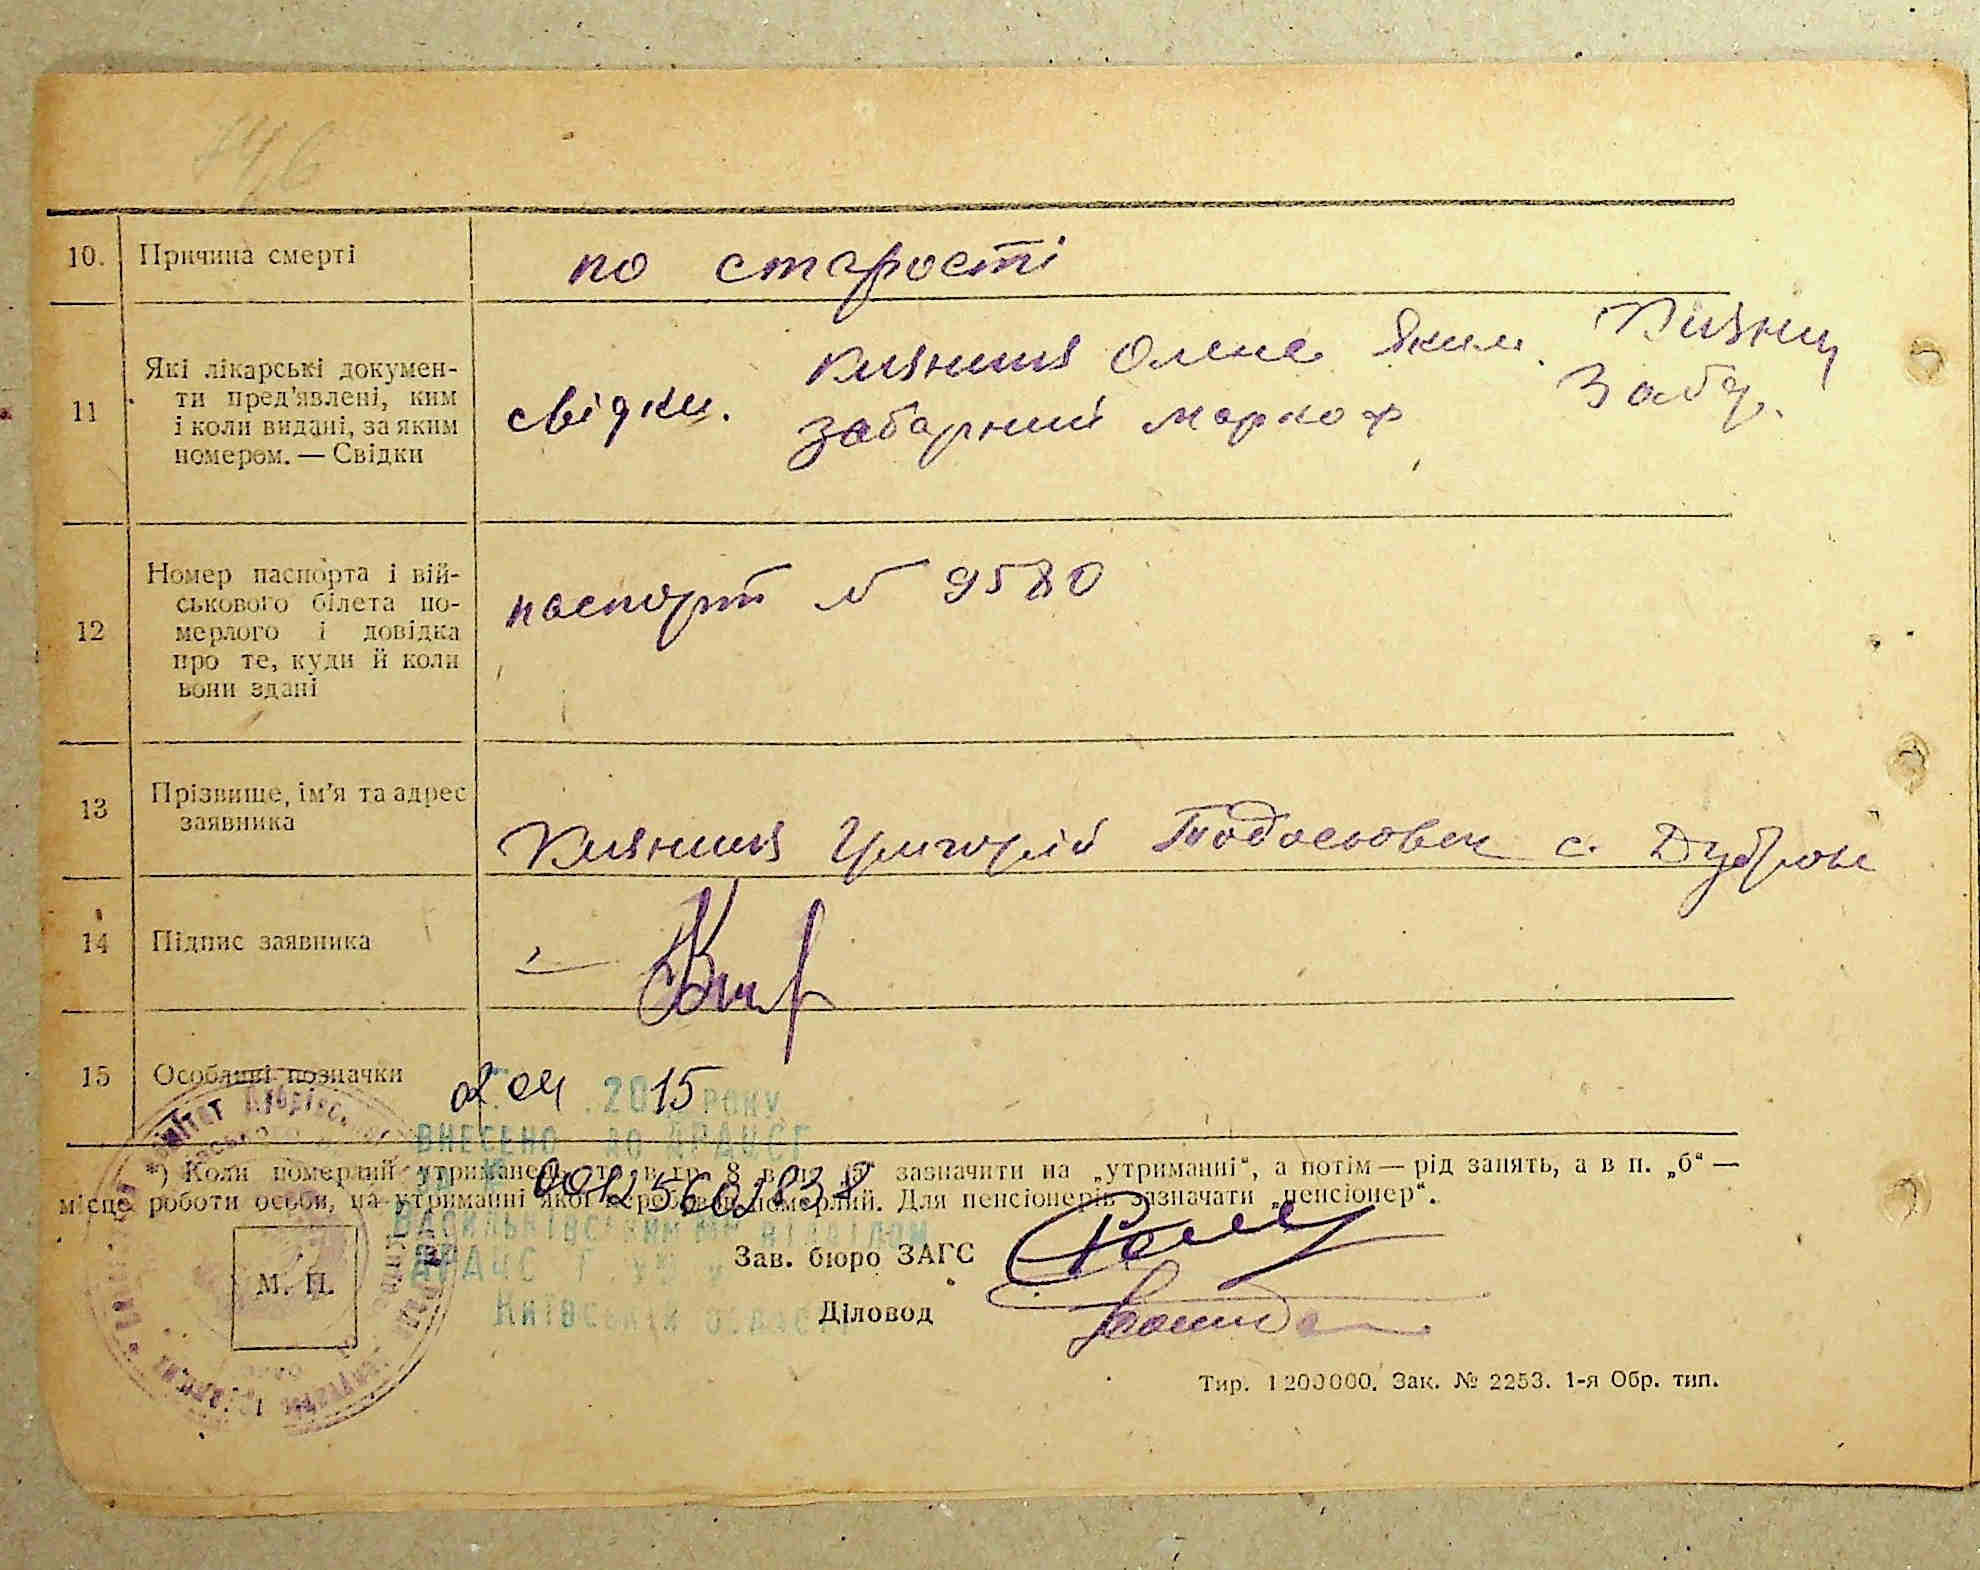 10. Причина смерті по старості
11 Які лікарські докумен-
ти пред'явлені, ким
і коли видані, за яким
номером. — Свідки
свідки. Княниця Олена Яким. Княниц
Забарний Марко Ф Забар.
12 Номер паспорта і вій-
ськового білета по-
мерлого і довідка
про те, куди й коли
вони здані
паспорт № 9580
13 Прізвище, ім'я та адрес
заявника
Григорій Тодосьович с.
14 Підпис заявника
15 Особливі позначки
2 04 .2015 РОКУ
ВНЕСЕНО ДО ДРАЦСГ
*) Коли померлий утриманець, то в гр. 8 в п. зазначити на „утриманні“, а потім — рід занять, а в п. „б“ —
місце роботи особи, на утриманні якої перебував померлий. Для пенсіонерів зазначати „пенсіонер“.
ВАСИЛЬКІВСЬКИМ МР ВІДДІЛОМ
Зав. бюро ЗАГС
М. П.
Діловод
КИЇВСЬКІЙ ОБЛАСТІ
Тир. 1200000. Зак. № 2253. 1-я Обр. тип.